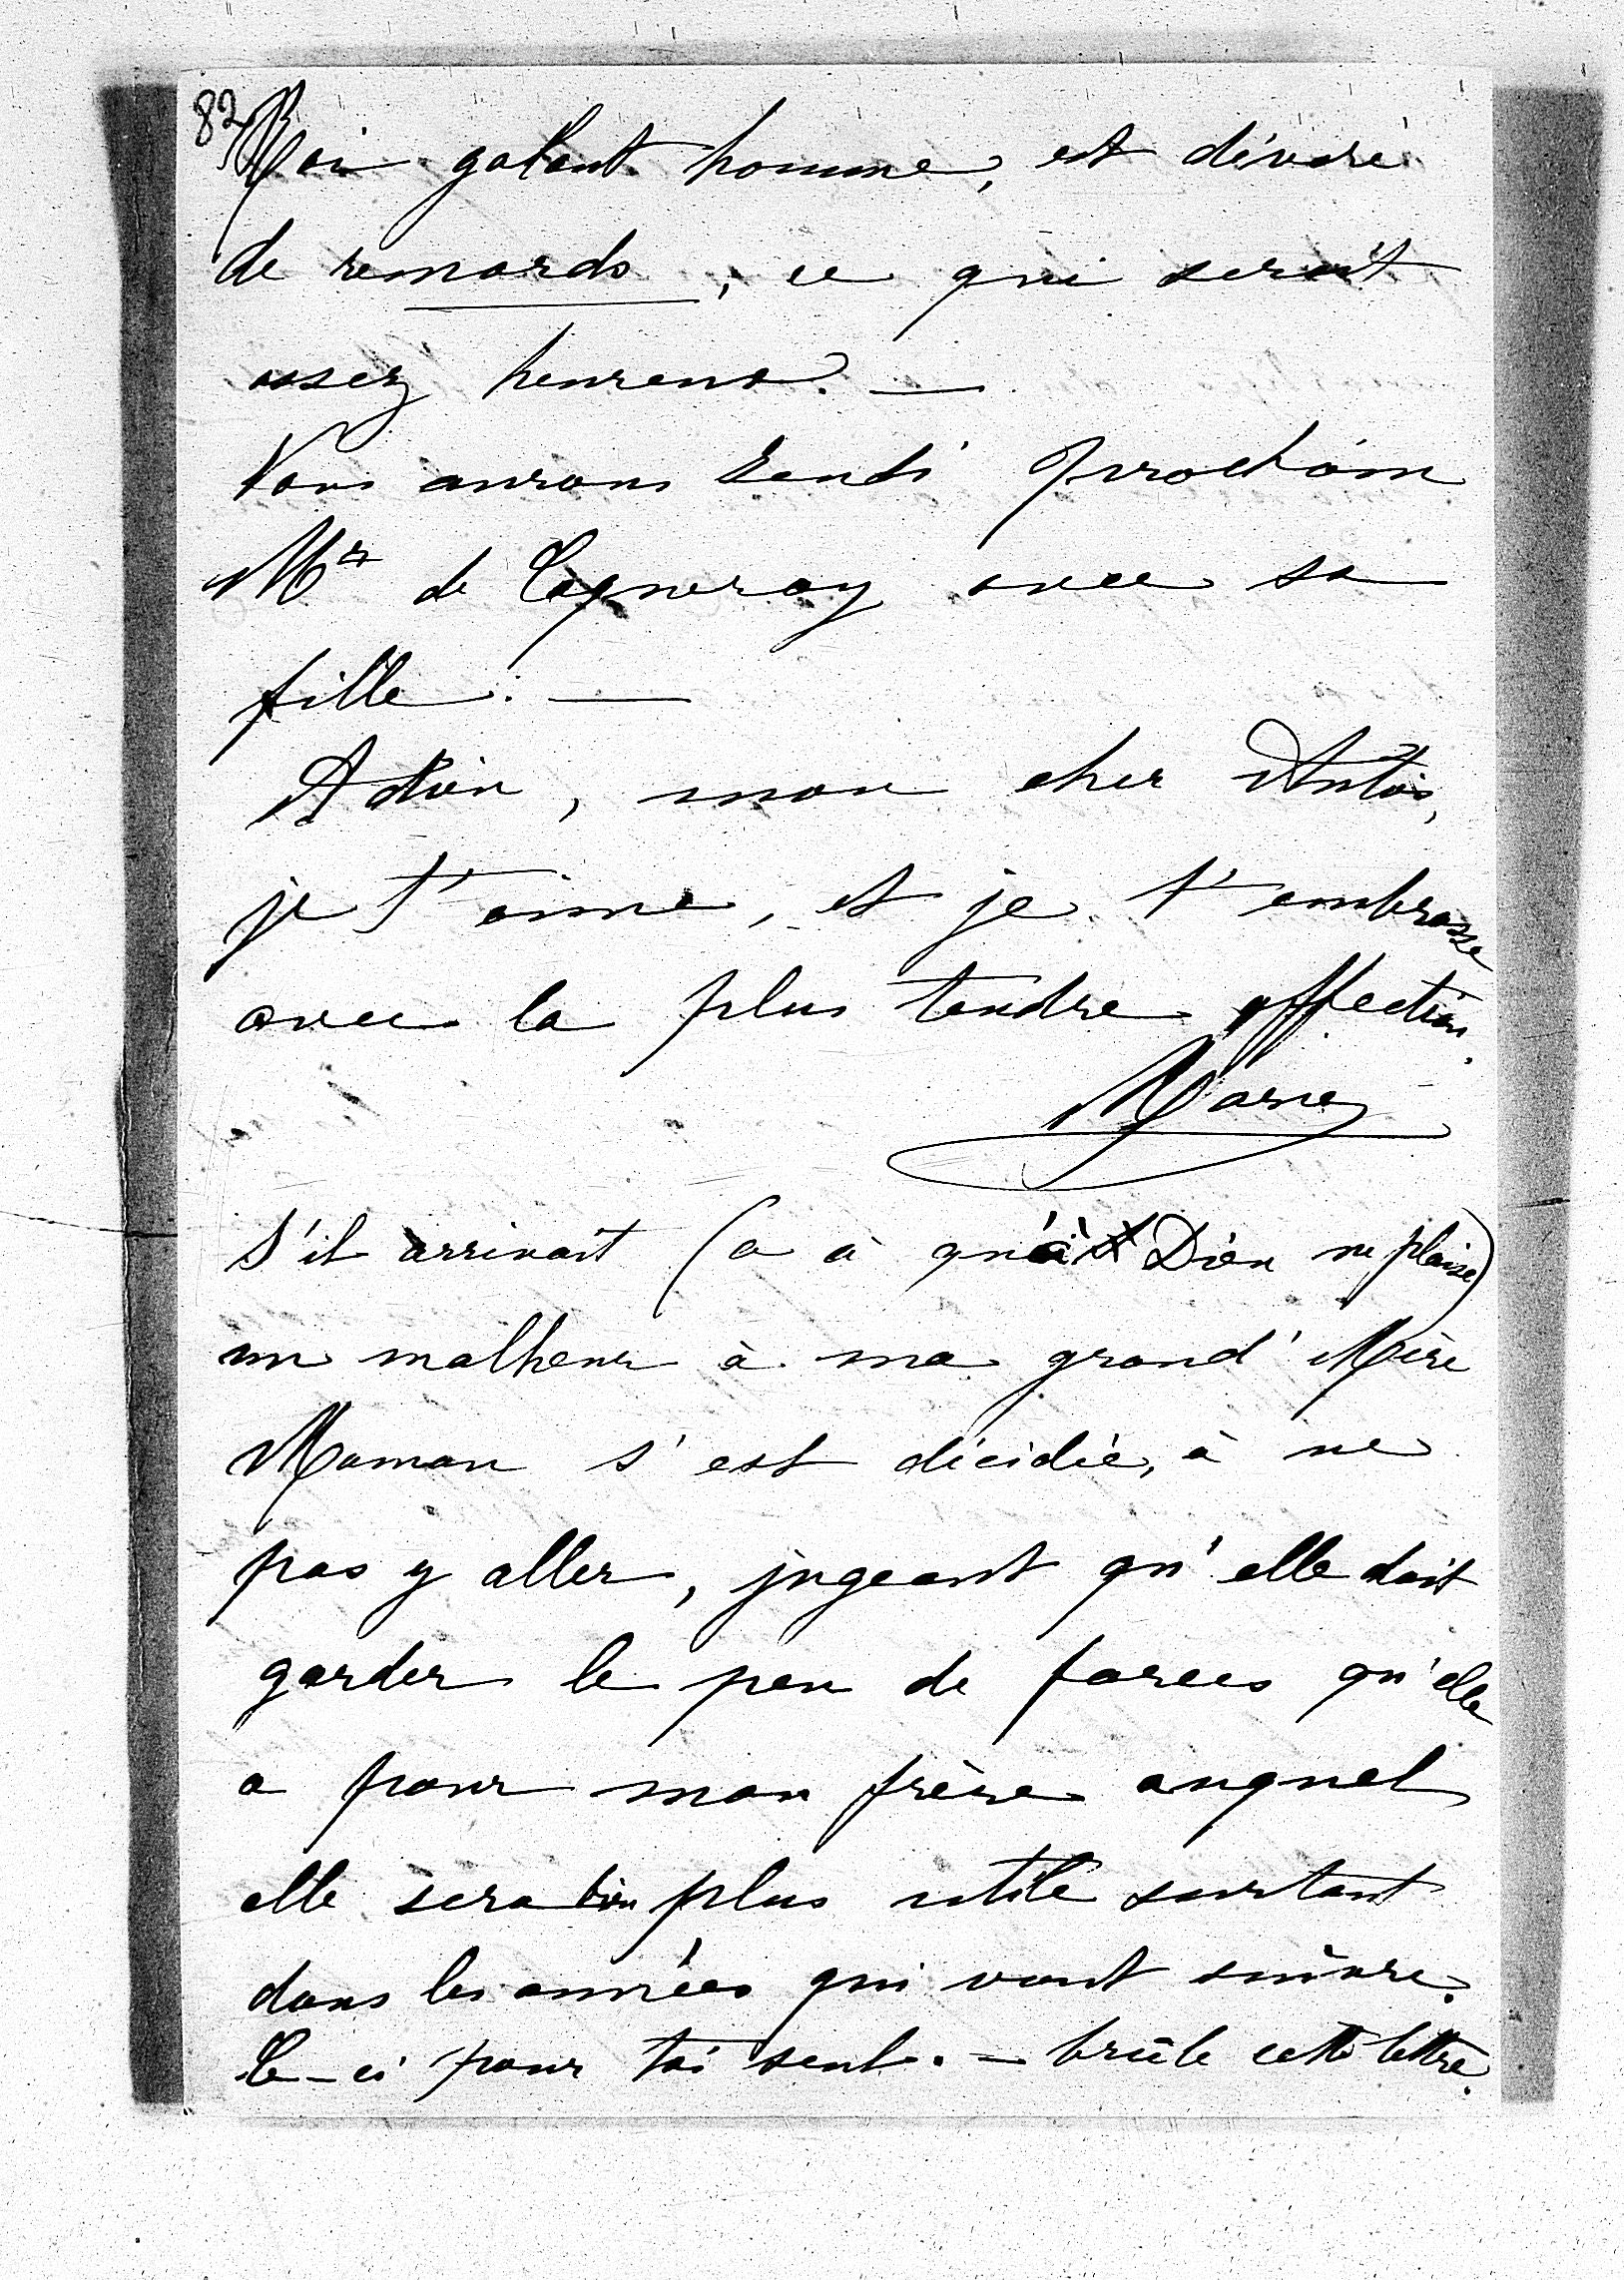 82
Moi galant homme, est dévoré
de remords, ce qui serait
assez heureux. —
Nous aurons Lundi prochain
Mr de Cagneray avec sa
fille. —
Adieu, mon cher Antoin,
je t'aime, et je t'embrasse
avec la plus tendre affection.
Marie
S'il arrivait (a à qu'à Dieu ne plaise)
un malheur à ma grand' Mère
Maman s'est décidée, à ne
pas y aller, jugeant qu'elle doit
garder le peu de forces qu'elle
a pour mon frère auquel
elle sera bien plus utile surtout
dans les années qui vont suivre.
Ce-ci pour toi seul. — brûle cette lettre.